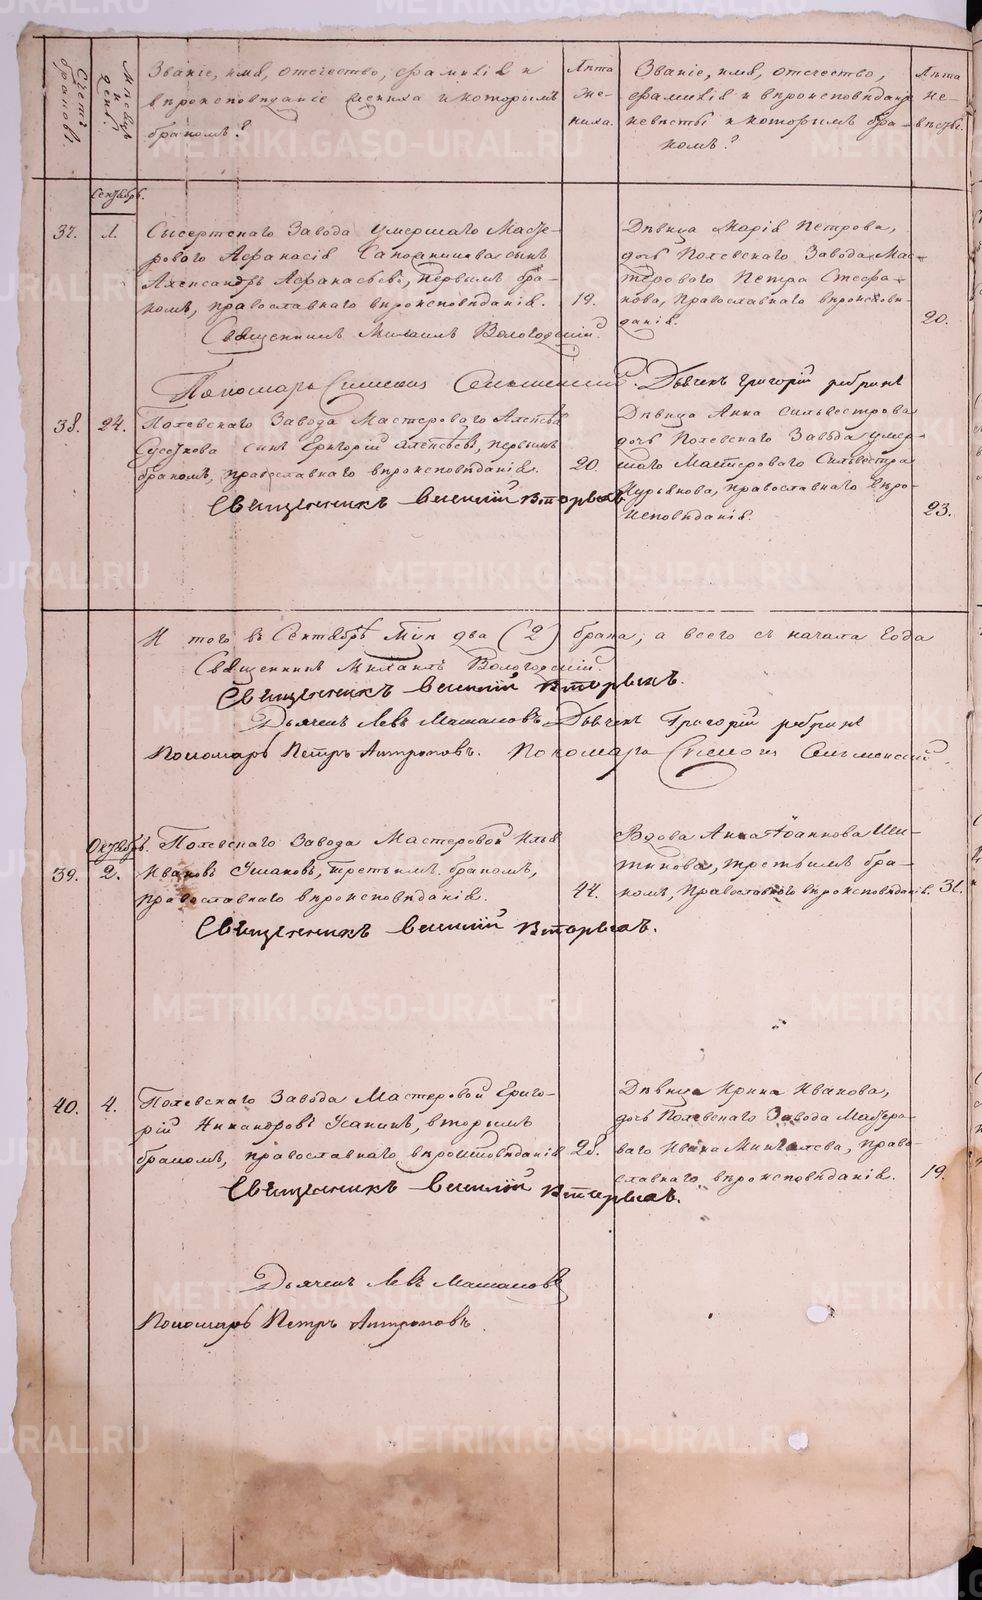 Счетъ браковъ.
Мѣсяцъ и день.
Званіе, имя, отечество, фамилія и
вѣроисповѣданіе жениха и которымъ
бракомъ?
Лѣта
же-
ниха.
Званіе, имя, отечество,
фамилія и вѣроисповѣданіе
невѣсты и которымъ бра-
комъ?
Лѣта
не-
вѣсты.
Сентябрь.
37.
1.
Сысертскаго Завода умершаго Масте-
роваго Аѳанасія Сапожникова сынъ
Александръ Аѳанасьевъ, первымъ бра-
комъ, православнаго вѣроисповѣданія.
19.
Священникъ Михаилъ Вологодскій.
Дѣвица Марія Петрова,
дочь Полевскаго Завода Мас-
тероваго Петра Стефа-
нова, Православнаго вѣроисповѣ-
данія.
20.
Пономарь Симеонъ
Дьячекъ Григорій
38.
24.
Полевскаго Завода Мастероваго Алексѣя
сынъ Григорій Алексѣевъ, первымъ
бракомъ, православнаго вѣроисповѣданія.
20.
Священникъ Василій Вторыхъ.
Дѣвица Анна Сильвестрова
дочь Полевскаго Завода умер-
шаго Мастероваго Сильвестра
православнаго вѣро-
исповѣданія.
23.
И того въ Сентябрѣ м-цѣ два (2) брака, а всего съ начала года
Священникъ Михаилъ Вологодскій.
Священникъ Василій Вторыхъ.
Дьячекъ Левъ Дьячекъ Григорій
Пономарь Петръ Антроповъ. Пономарь Симеонъ
Октябрь.
39.
2.
Полевскаго Завода Мастеровой Илья
Ивановъ Ушаковъ, третьимъ бракомъ,
православнаго вѣроисповѣданія.
44.
Священникъ Василій Вторыхъ.
Вдова Анна Іоаннова
третьимъ бра-
комъ, Православнаго вѣроисповѣданія.
31.
40.
4.
Полевскаго Завода Мастеровой Григо-
рій Никандровъ вторымъ
бракомъ, православнаго вѣроисповѣданія
28.
Священникъ Василій Вторыхъ.
Дѣвица Ирина Иванова,
дочь Полевскаго Завода Мастеро-
ваго Ивана право-
славнаго вѣроисповѣданія.
19.
Дьячекъ Левъ
Пономарь Петръ Антроповъ.
METRIKI.GASO-URAL.RU